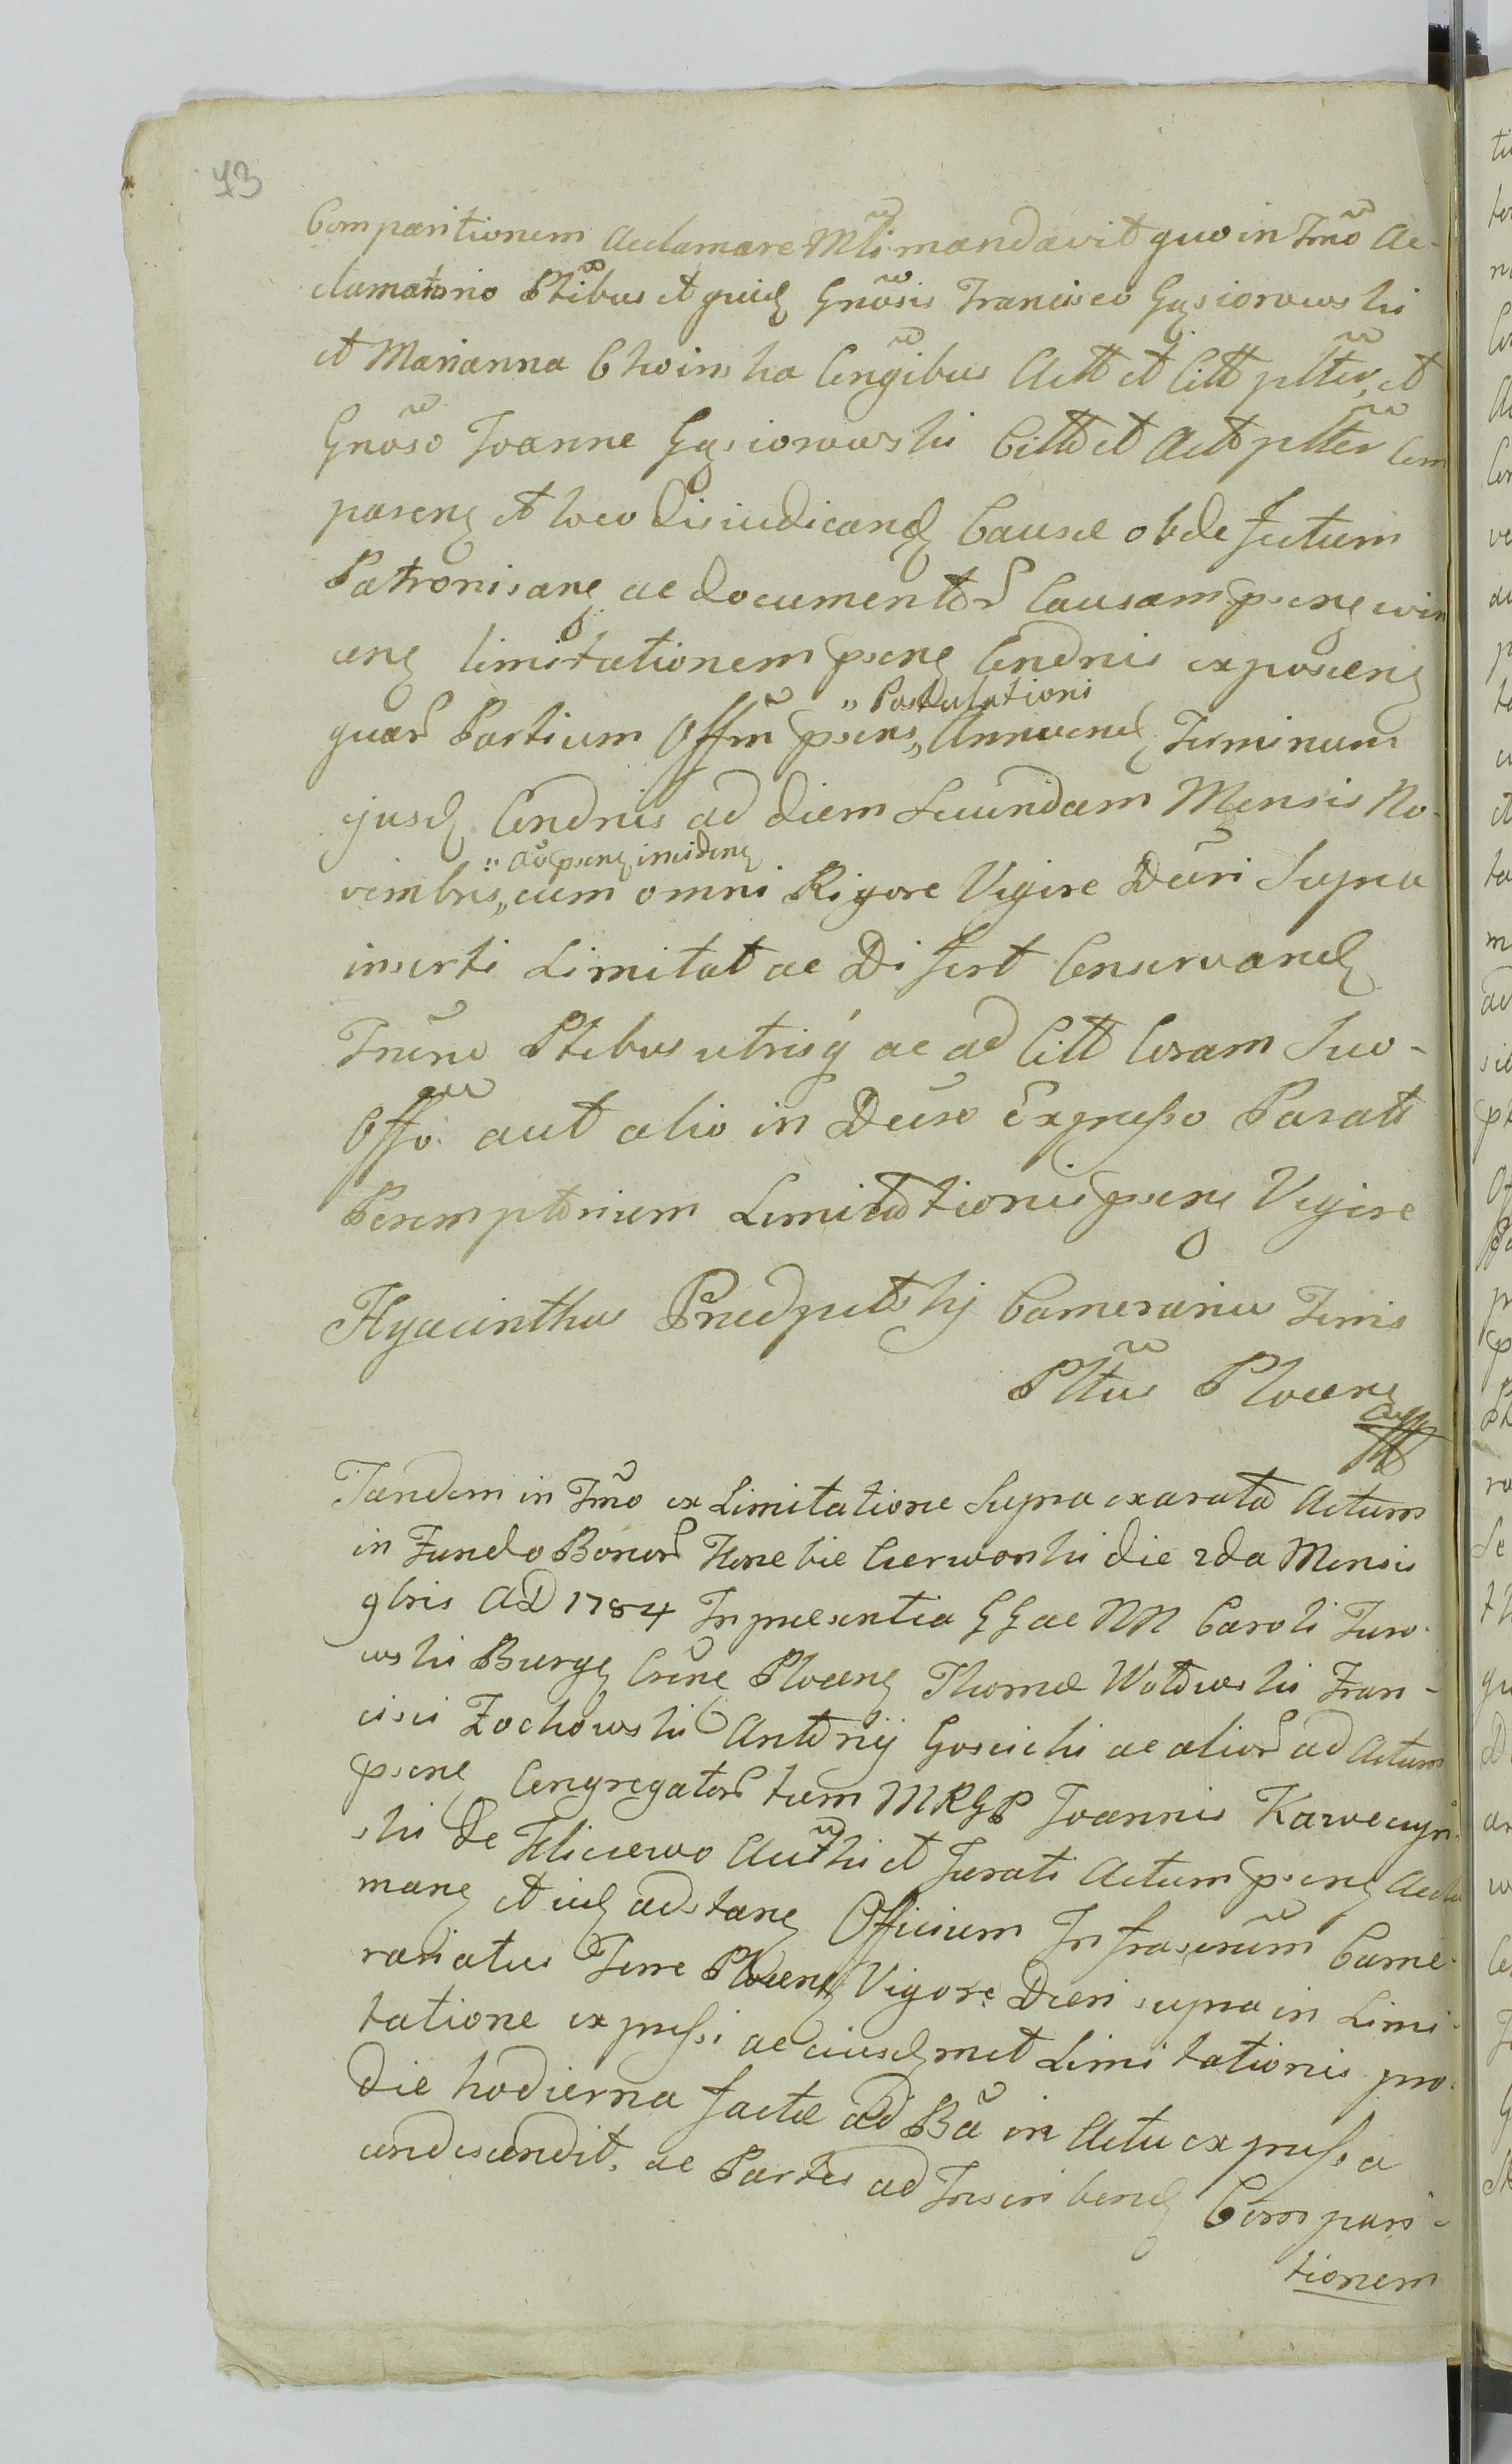 73
Comparitionem Acclamare Mtli mandavit quo in Tmo Ac-
clamatorio Ptibus et quid Gnosis Francisco Gąsiorowski
et Marianna Choinska Congibus Actt et Citt pltev, et
Gnoso Joanne Gąsiorowski Citto et Acto pltev Com
paren et loco disiudicand Causæ ob defectum
Patronisan ac documentor Causam psen
cen limitationem psen Condnis exposcen
quar Partium Offm psens „ Annuend Terminum
„ Postulationi
ejusd Condnis ad diem Secundam Mensis No-
vembris „ cum omni Rigore Vigore Dcri Supra
„ ao psen inciden
inserti Limitat ac Differt Conservand
Tmno Ptebus utrisq ac ad Citt Coram Suo-
Offo aut alio in Dcro Expresso Parati
Peremptorium Limitationis psens Vigore
Hyacinthus Camerarius Terris
Pltus Plocen
Tandem in Tmo ex Limitatione Supra exarata Actum
in Fundo Bonor Czerwonki die 2da Mensis
9bris AD 1784 In præsentia GG ac NN Caroli Turo-
wski Burg Crene Plocen Thomæ Wołowski Fran-
cisci Żochowski Antonij Gościcki ac alior ad Actum
psen Congregator tum MRGP Joannis Karwczyn
ski De Filicewo Authi et Jurati Actum psen Accla
man et iid adstan Officium Infrascrum Came-
rariatus Terre Plocen Vigore Dcri supra in Limi-
tatione expressi ac eiusdmet Limitationis pro
die hodierna factæ ad Ba in Actu expressa
condescendit, ac Partes ad Inscribend Compari-
tionem